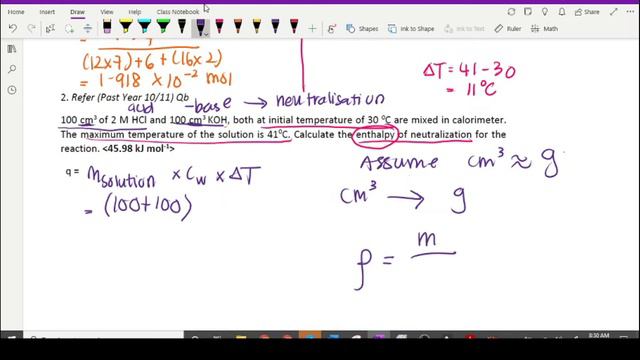 File Home Insert Draw History Review View Help Class Notebook
Shapes Ink to Shape Ink to Text Ink to Math
(12×7)+6+(16×2)
= 1.918 × 10⁻² mol
ΔT = 41 - 30
= 11°C
2. Refer (Past Year 10/11) Qb
acid - base → neutralisation
100 cm³ of 2 M HCl and 100 cm³ KOH, both at initial temperature of 30 °C are mixed in calorimeter.
The maximum temperature of the solution is 41°C. Calculate the enthalpy of neutralization for the
reaction. <45.98 kJ mol⁻¹>
Assume cm³ ≈ g
q = m solution × Cw × ΔT
= (100+100)
cm³ → g
ρ = m
8:30 AM